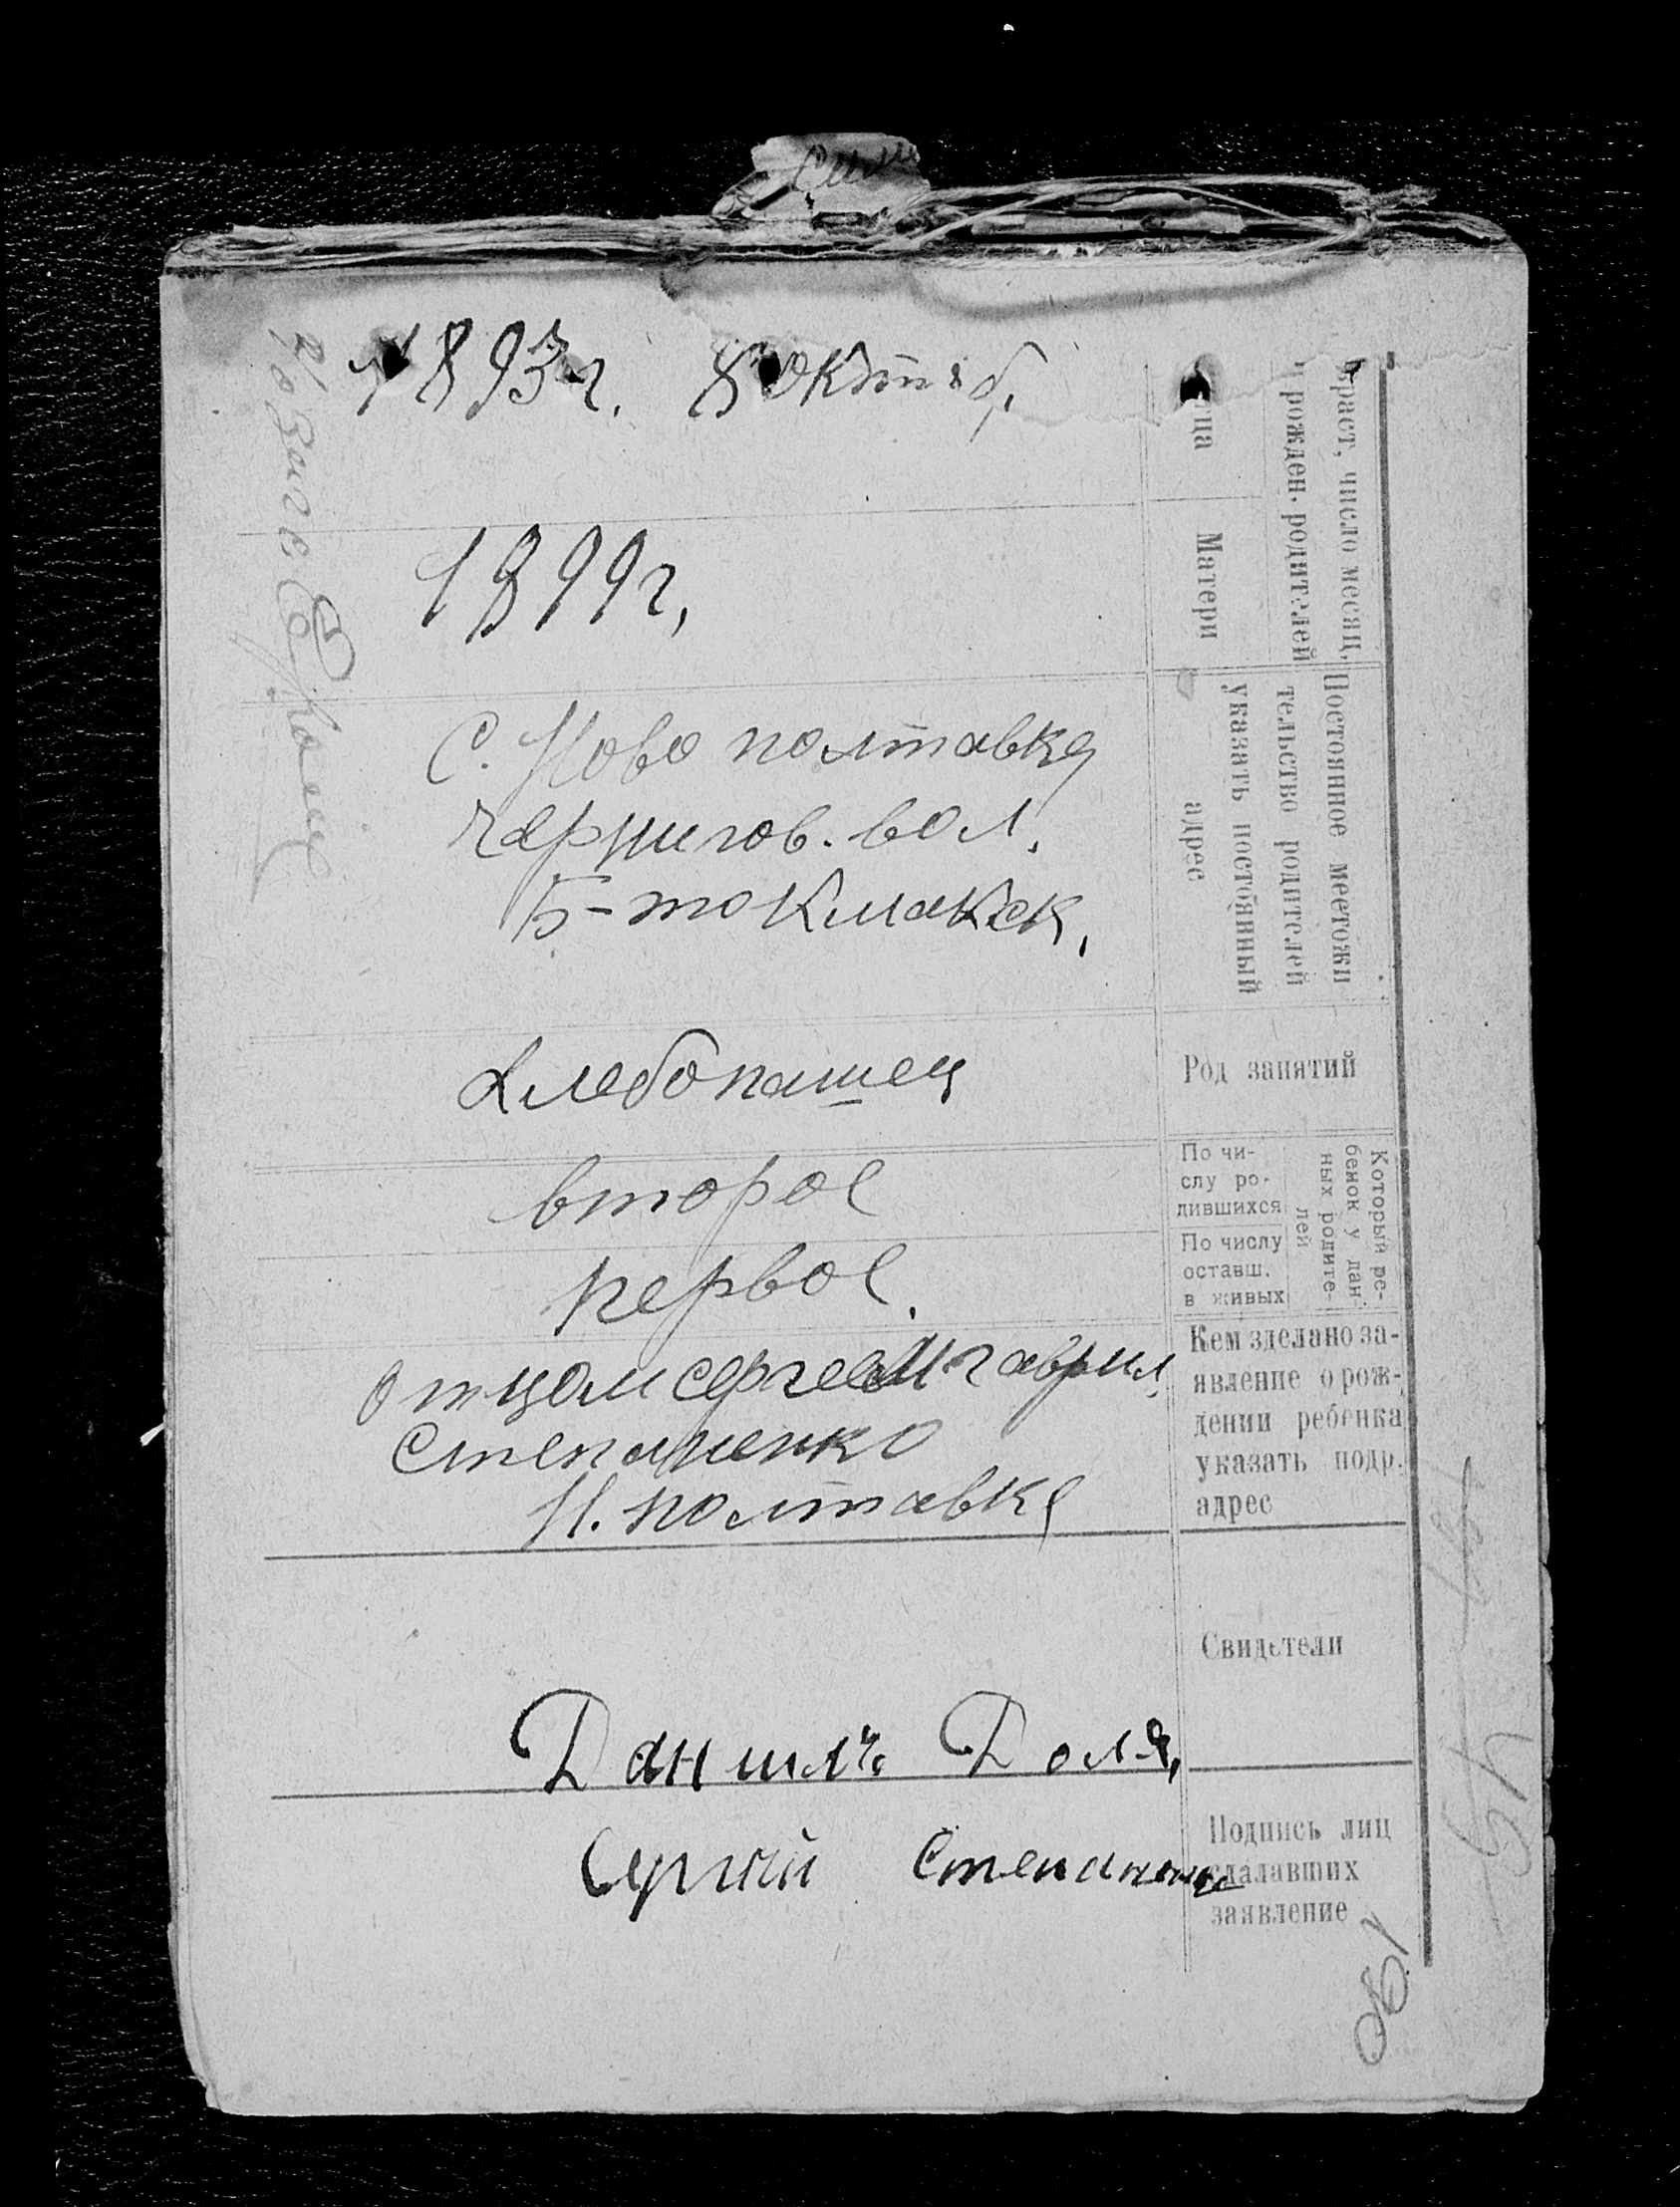 1893г. 8 октяб,
1899г,
С. Ново полтавка
чернигов. вол.
Б-токмакск,
хлебопашец
второе
первое.
отцом сергеем гаврил.
степаненко
Н. полтавка
Данилъ Доля,
Сергий Степаненко
враст, число месяц,
рожден. родителей
тца
Матери
Постоянное местожи
тельство родителей
указать постоянный
адрес
Род занятий
Который ре-
бенок у дан-
ных родите-
лей
По чи-
слу ро-
дившихся
По числу
оставш.
в живых
Кем зделано за-
явление о рож-
дении ребенка
указать подр.
адрес
Свидетели
Подпись лиц
сдалавших
заявление
45
190